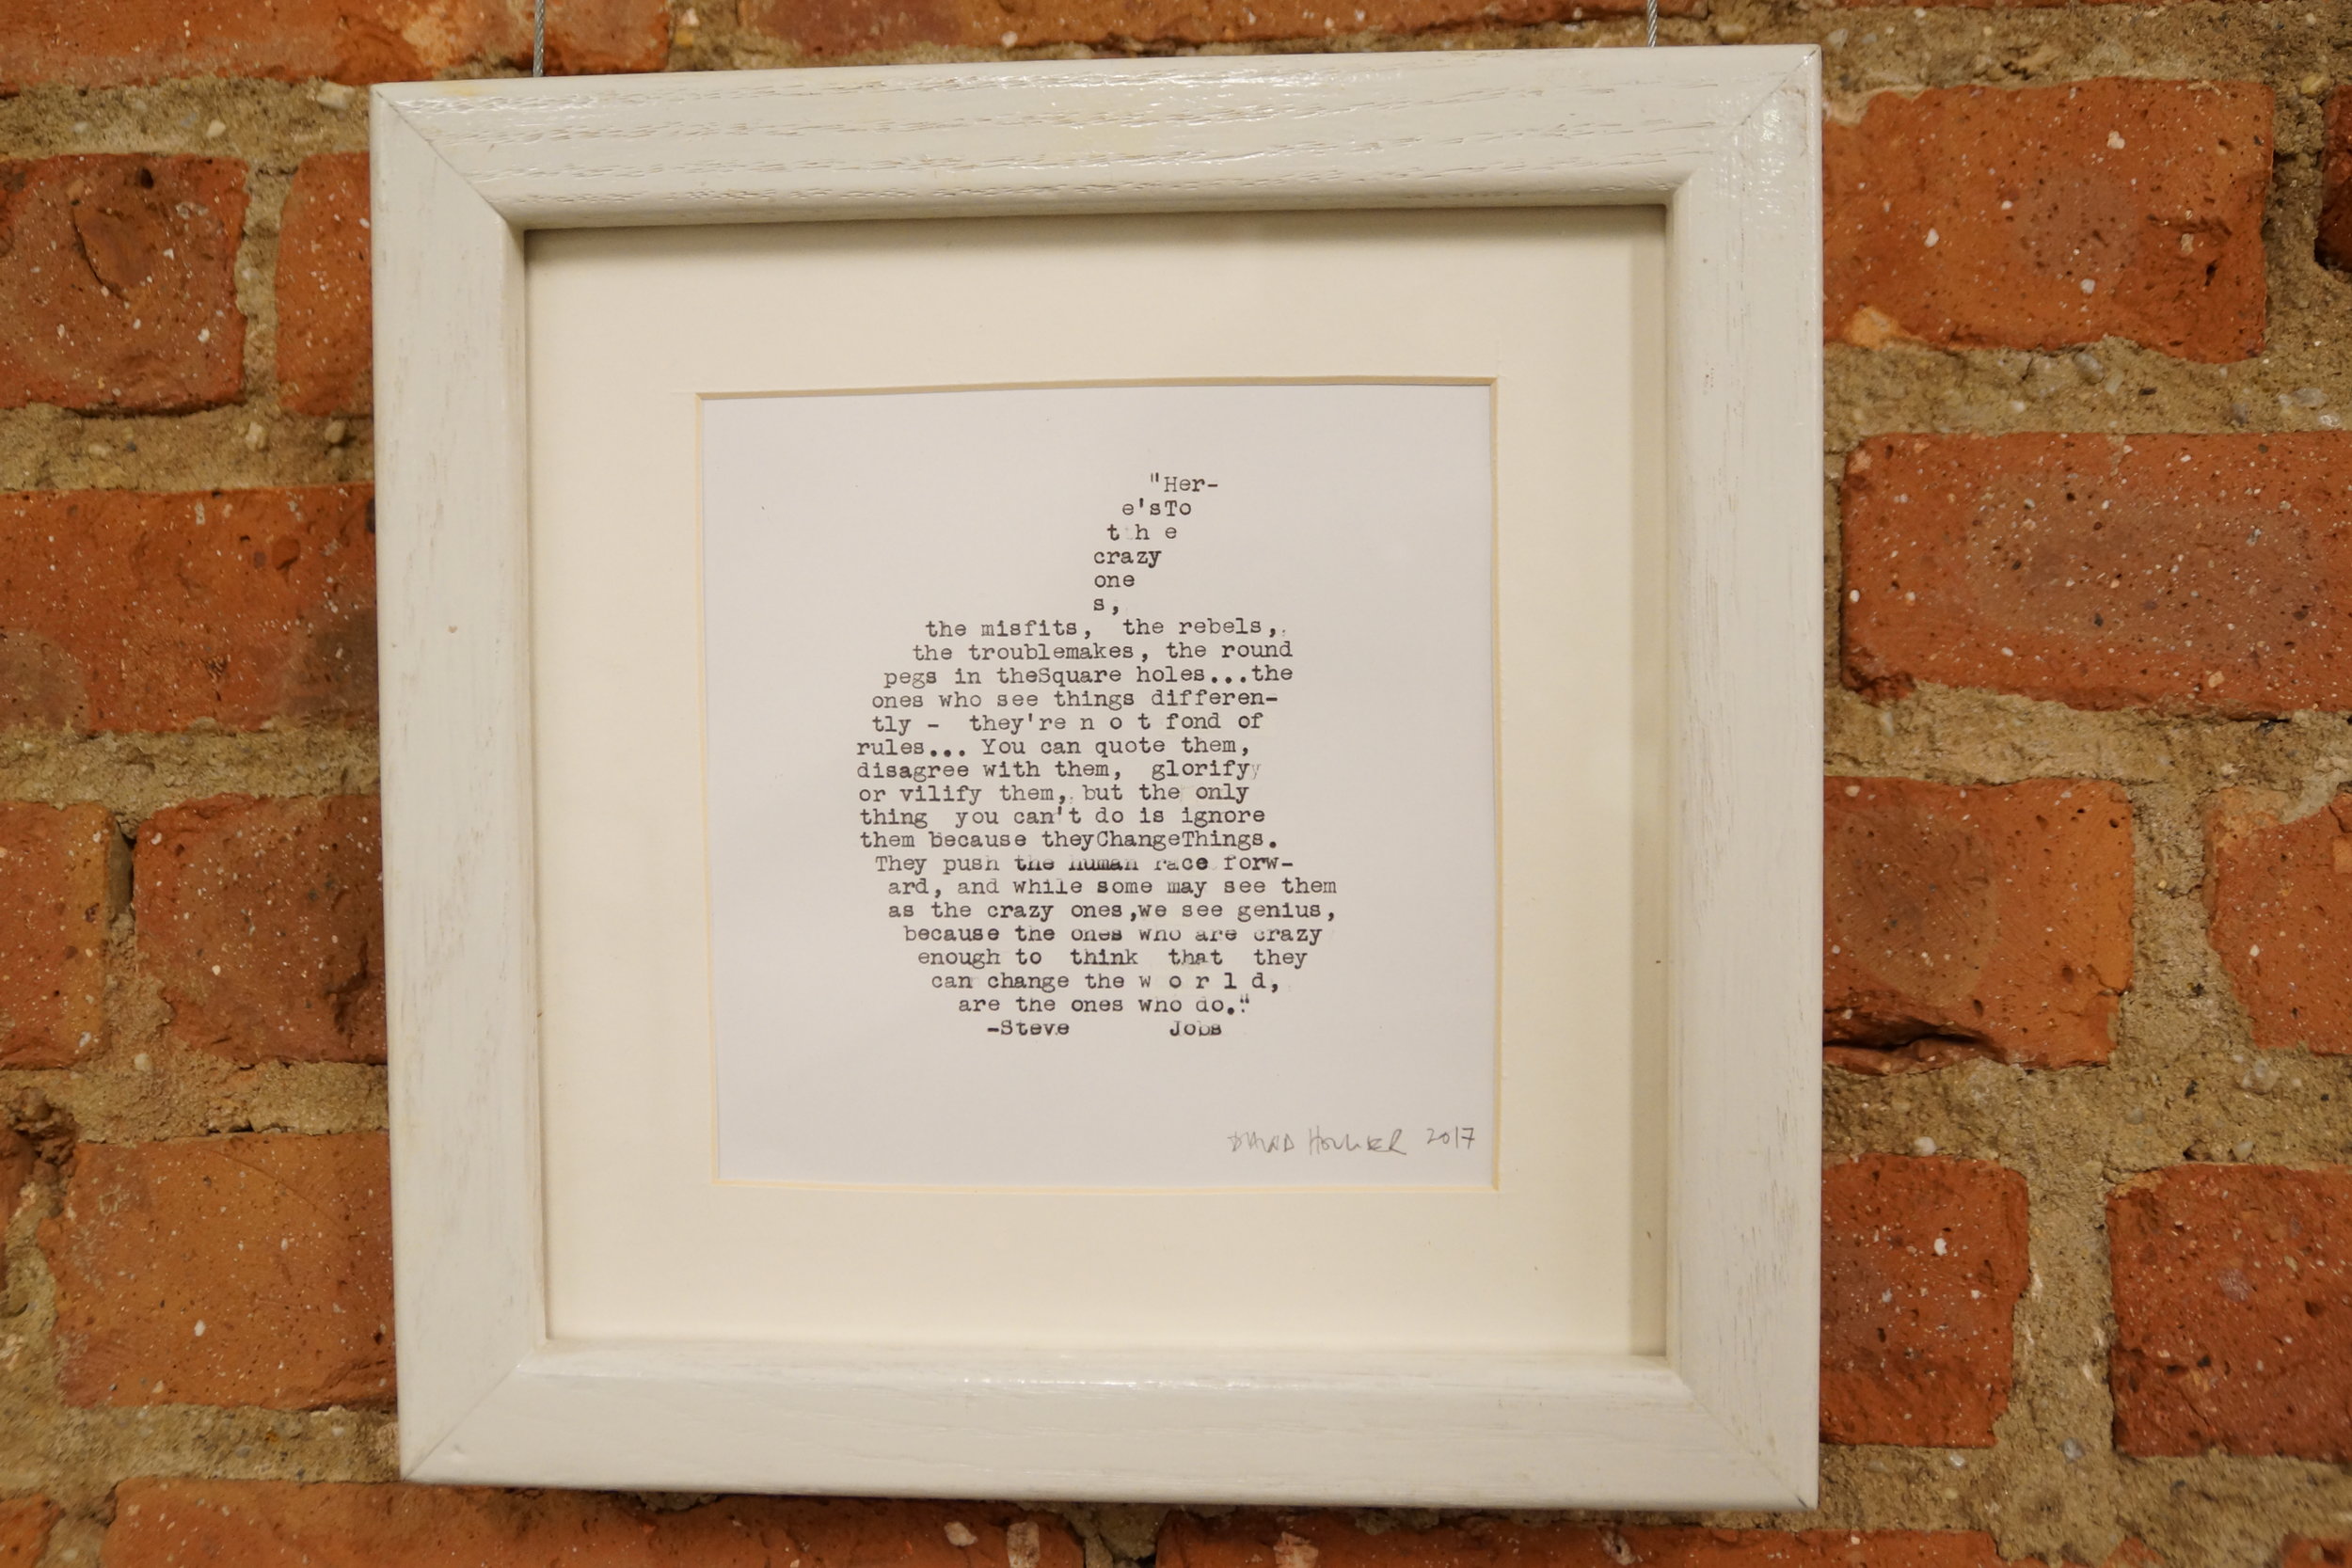 "Her-
e'sTo
t h e
crazy
one
s,
the misfits, the rebels,
the troublemakes, the round
pegs in theSquare holes...the
ones who see things differen-
tly - they're n o t fond of
rules... You can quote them,
disagree with them, glorifyy
or vilify them, but the only
thing you can't do is ignore
them because theyChangeThings.
They push the human race forw-
ard, and while some may see them
as the crazy ones,we see genius,
because the ones who are crazy
enough to think that they
can change the w o r l d,
are the ones who do."
-Steve Jobs
2017